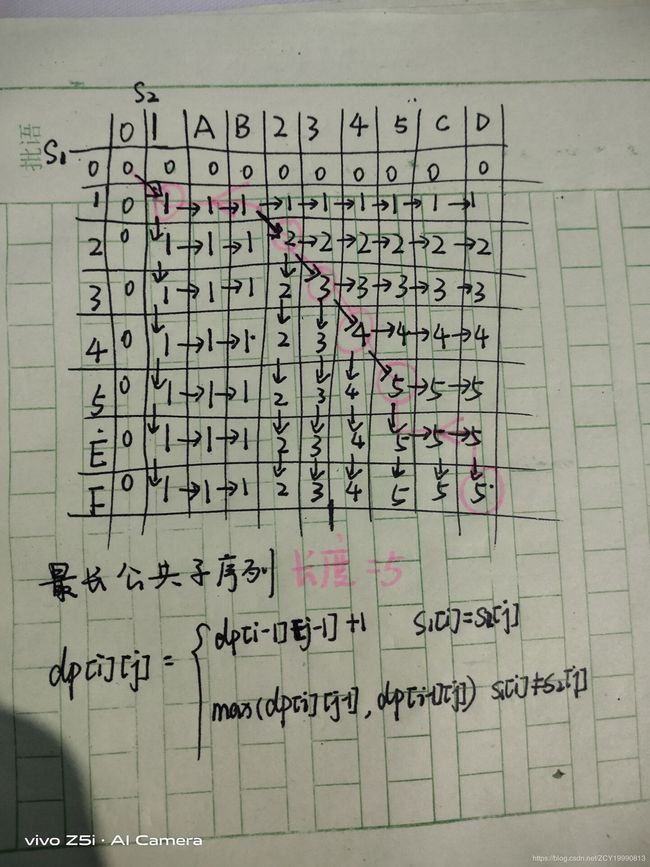 S2
批语
S1
0 1 A B 2 3 4 5 C D
0 0 0 0 0 0 0 0 0 0 0
1 0 1→1→1→1→1→1→1→1→1
2 0 1→1→1 2→2→2→2→2→2
3 0 1→1→1 2 3→3→3→3→3
4 0 1→1→1 2 3 4→4→4→4
5 0 1→1→1 2 3 4 5→5→5
E 0 1→1→1 2 3 4 5→5→5
F 0 1→1→1 2 3 4 5 5 5
最长公共子序列 长度=5
dp[i][j] =
dp[i-1][j-1]+1 S1[i]=S2[j]
max(dp[i][j-1], dp[i-1][j]) S1[i]≠S2[j]
vivo Z5i · AI Camera
https://blog.csdn.net/ZCY19990813